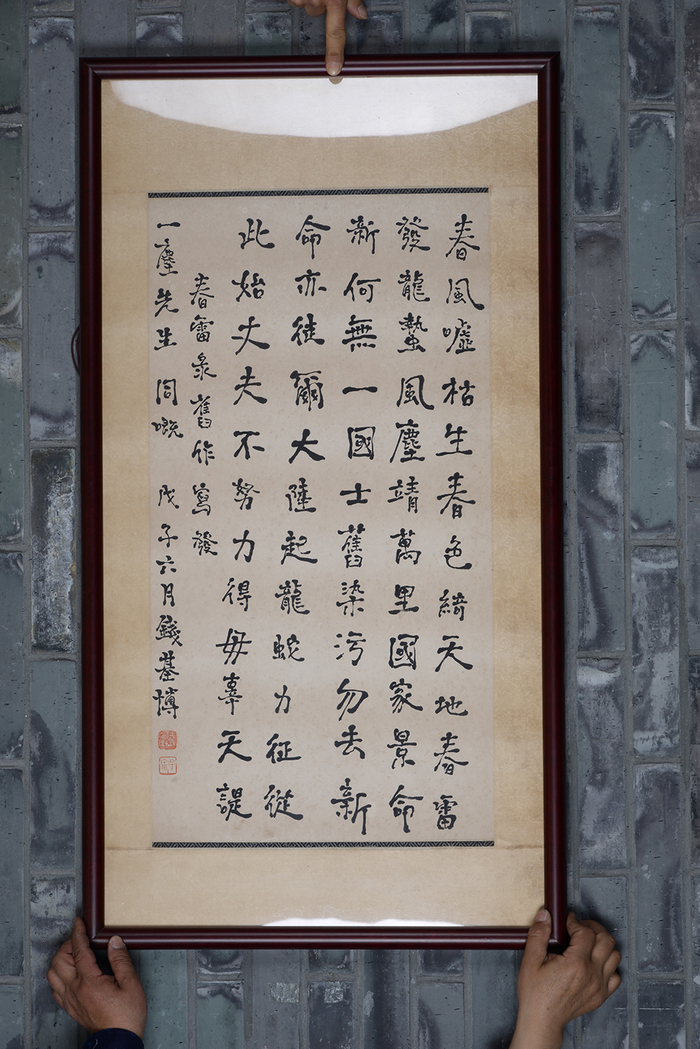 春風噓枯生春色綺天地春雷
發龍蟄風塵靖萬里國家景命
新何無一國士舊染污勿去新
命亦徒爾大陸起龍蛇力征從
此始丈夫不努力得毋辜天諟
春雷彔舊作寫發
一塵先生同嘅戊子六月錢基博